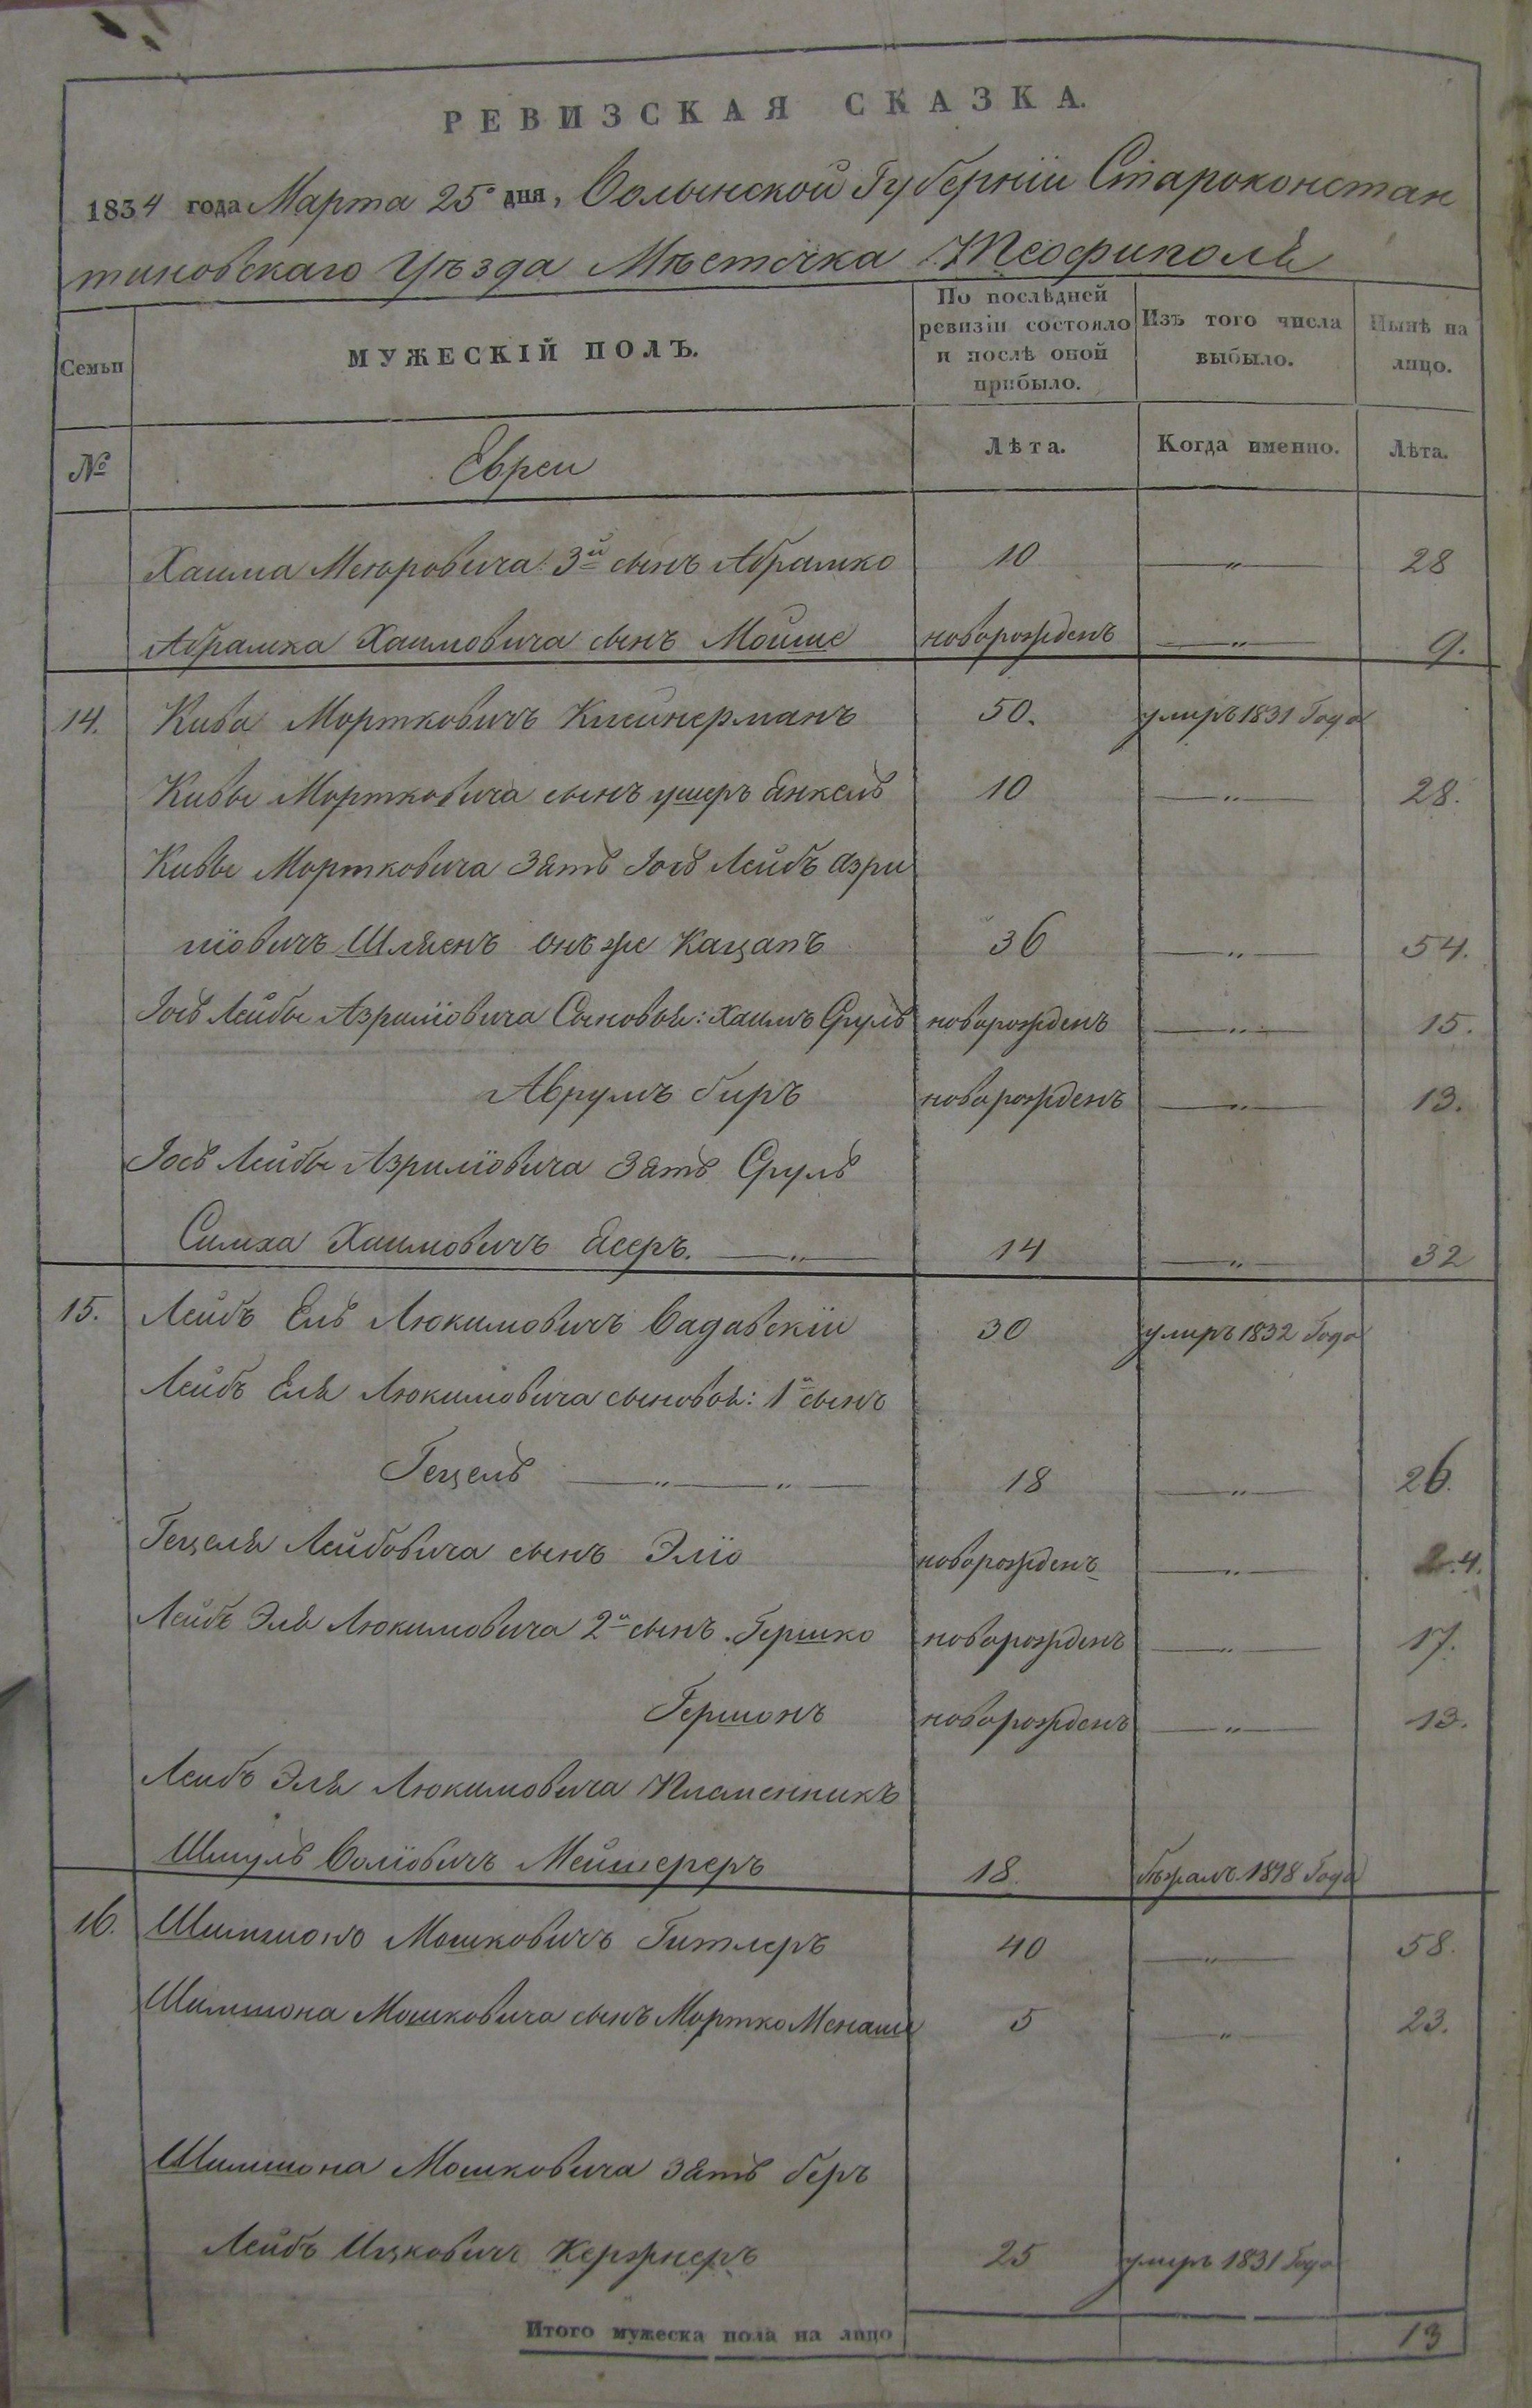 РЕВИЗСКАЯ СКАЗКА.
1834 года Марта 25 дня, Волынской Губерніи Староконстан
тиновскаго Уѣзда Мѣстечка Теофиполя
Семьи
МУЖЕСКІЙ ПОЛЪ.
По послѣдней ревизіи состояло и послѣ оной прибыло.
Изъ того числа выбыло.
Нынѣ на лицо.
№ Евреи Лѣта. Когда именно. Лѣта.
Хаима Меюровича 3й сынъ Абрамко 10 —„— 28
Абрамка Хаимовича сынъ Мойше новорожденъ —„— 9.
14. Кива Мортковичъ Клейнерманъ 50. умиръ 1831 Года
Кивы Мортковича сынъ ушеръ Янкель 10 —„— 28.
Кивы Мортковича Зять Іось Лейбъ Азри
ліовичъ Шляенъ онъ же Кацапъ 36 —„— 54.
Іось Лейбы Азриліовича Сыновья: Хаимъ Сруль новорожденъ —„— 15.
Аврумъ биръ новорожденъ —„— 13.
Іось Лейбы Азриліовича Зять Сруль
Симха Хаимовичъ Ясеръ. —„— 14 —„— 32
15. Лейбъ Ель Люкимовичъ Садавскіи 30 умиръ 1832 Года
Лейбъ Еля Люкимовича сыновья: 1й сынъ
Гецель —„—„— 18 —„— 26.
Гецеля Лейбовича сынъ Эліо новорожденъ —„— 4.
Лейбъ Эля Люкимовича 2й сынъ Гершко новорожденъ —„— 17.
Гершонъ новорожденъ —„— 13.
Лейбъ Эля Люкимовича Племенникъ
Шмуль Воліовичъ Мейшереръ 18. бѣжалъ 1818 Года
16. Шимшонъ Мошковичъ Гитлеръ 40 —„— 58.
Шимшона Мошковича сынъ Мортко Менаше 5 —„— 23.
Шимшона Мошковича зять беръ
Лейбъ Ицковичъ Кержнеръ 25 умиръ 1831 Года
Итого мужеска пола на лицо 13